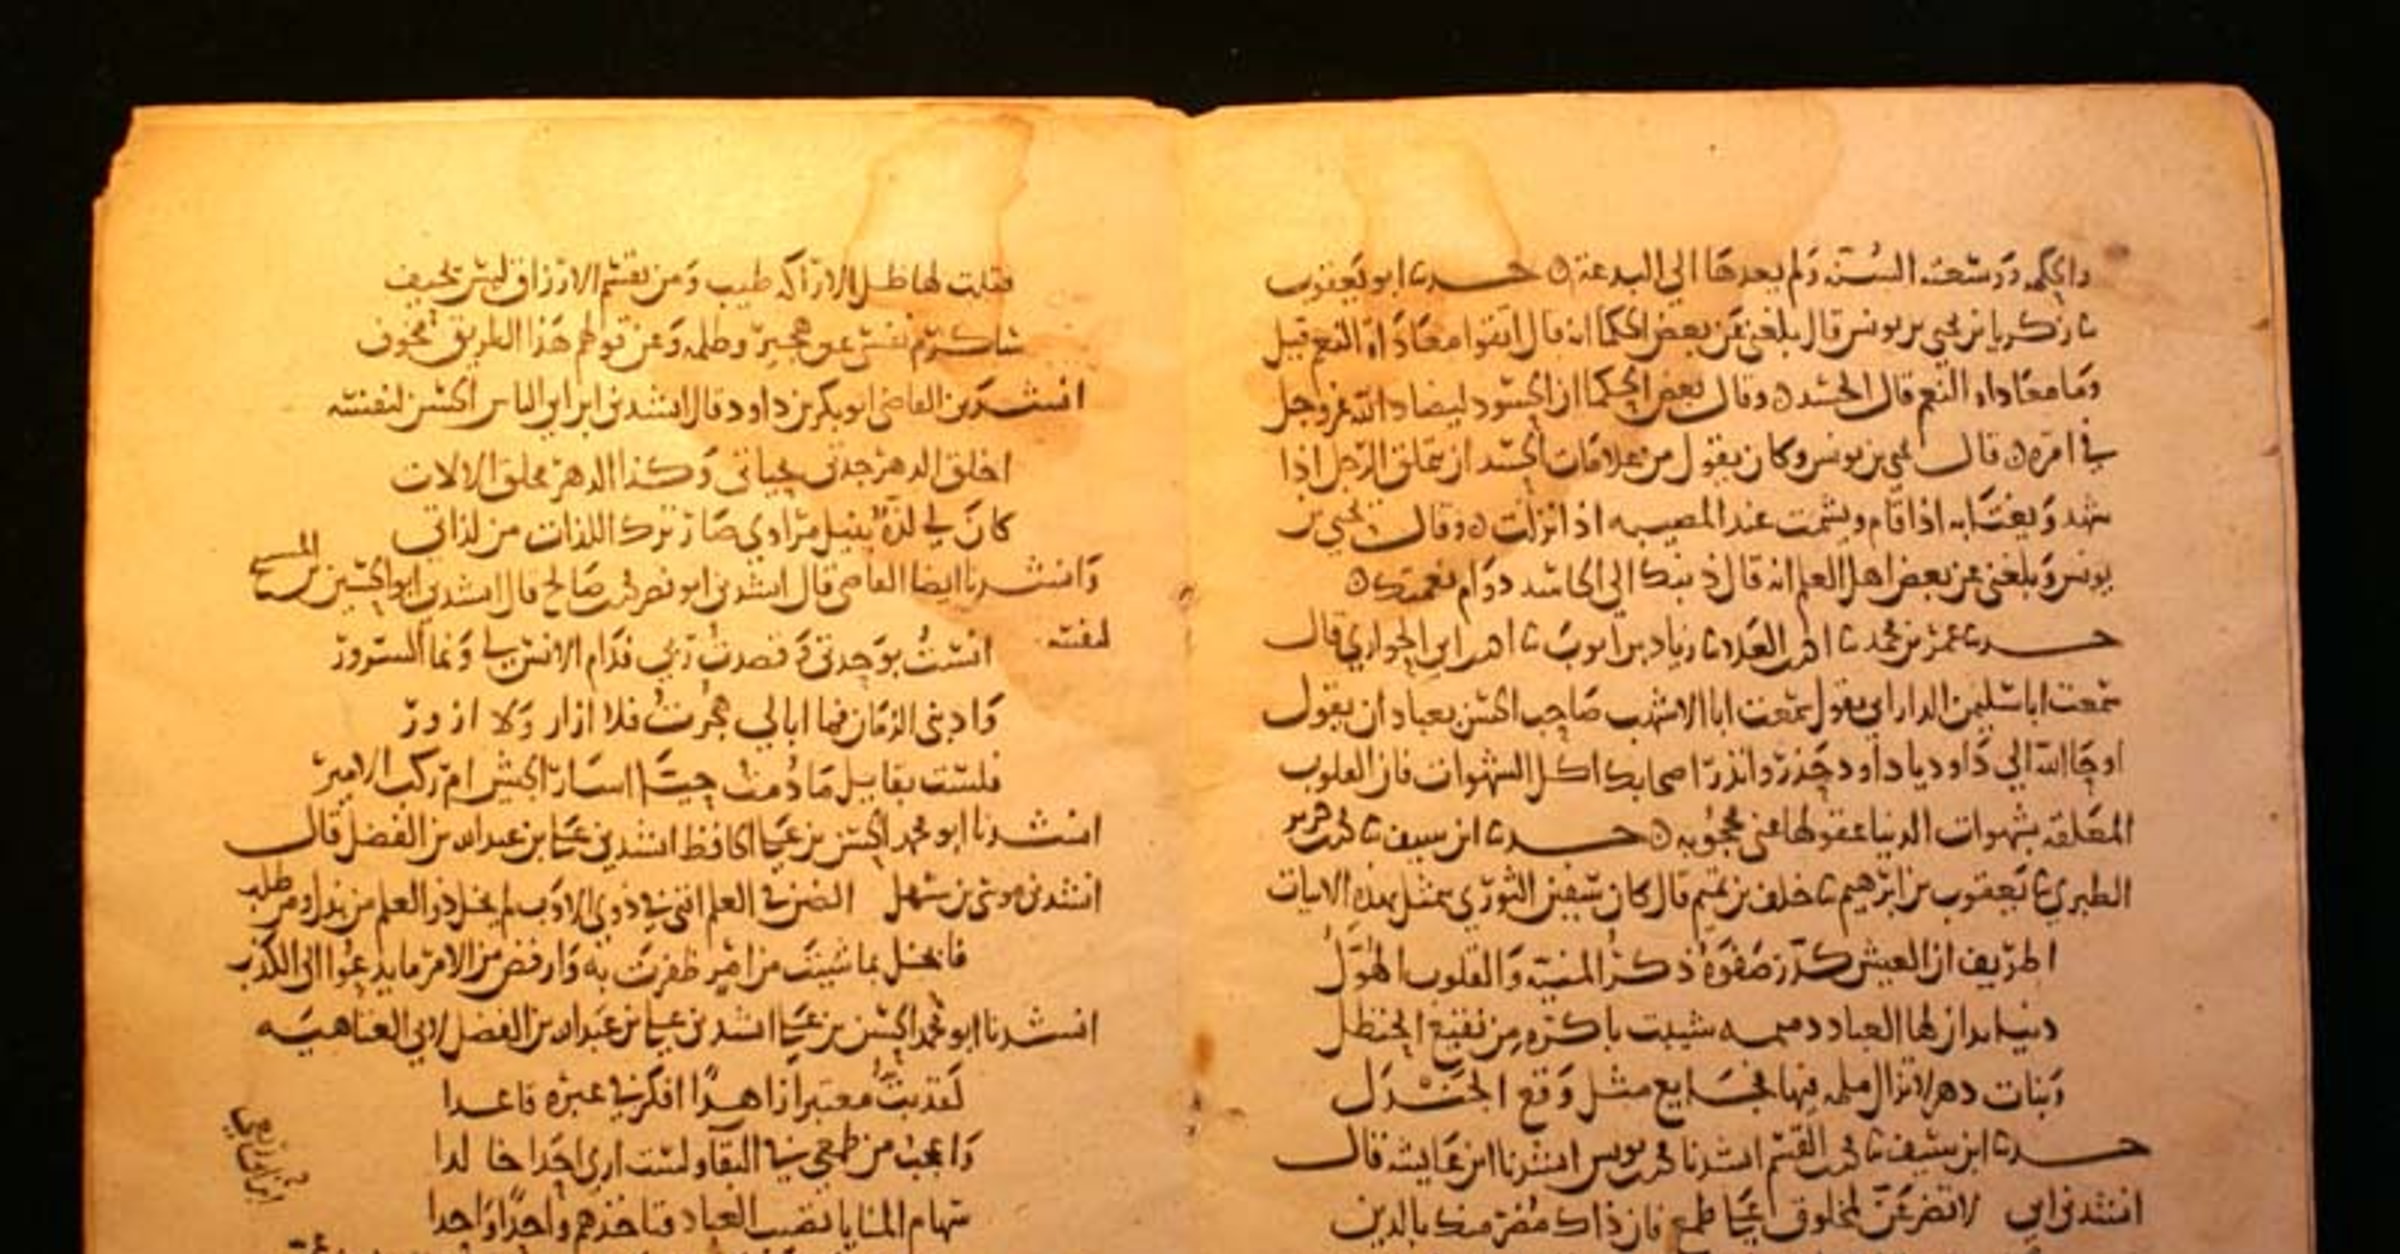 والحكمة ووسعته السنة ولم يعدها الى البدعة ه حدثنا ابو يعقوب
ثنا زكريا بن يحيى بن يونس قال بلغني عن بعض الحكما انه قال اتقوا معاداة النعم قيل
وما معاداة النعم قال الحسد ه وقال بعض الحكما ان الحسود ليضاد الله عز وجل
في امره ه قال يحيى بن يونس وكان يقول من علامات الحسد ان يتملق الرجل اذا
شهد ويغتابه اذا قام ويشمت عند المصيبه اذا نزلت ه وقال يحيى بن
يونس وبلغني عن بعض اهل العلم انه قال ذنبك الى الحاسد دوام نعمتك ه
حدثنا عمر بن محمد ثنا العلا ثنا زياد بن ايوب ثنا احمد بن ابي الحواري قال
سمعت ابا سليمن الداراني يقول سمعت ابا الاشهب صاحب الحسن بعبادان يقول
اوحا الله الى داود يا داود حذر وانذر اصحابك اكل الشهوات فان القلوب
المعلقه بشهوات الدنيا عقولها عني محجوبه ه حدثنا ابن سيف ثنا محمد بن جرير
الطبري ثنا يعقوب بن ابرهيم ثنا خلف بن تميم قال كان سفين الثوري يتمثل بهذه الابيات
اطريف ان العيش كدر صفوه ذكر المنيه والقلوب الهول
دنيا تداولها العباد ذميمه شيبت باكره من نقيع الحنظل
وبنات دهر لا تزال ملمه فيها فجايع مثل وقع الجندل
حدثنا ابن سيف ثنا محمد بن القسم انشدنا محمد بن يونس انشدنا ابن عايشه قال
انشدني ابي لا تضرعن لمخلوق على طمع فان ذاك مضر منك بالدين
فقلت لها ظل الاراكة طيب ومن يقسم الارزاق ليس يحيف
ساكرم نفسي عن هجير وظلمه وعن قولهم هذا الطريق مخوف
انشدني القاضي ابو بكر بن داود قال انشدني ابراهيم الحسن لنفسه
اخلق الدهر جدتي بحياتي وكذا الدهر مخلق الالات
كان لي لذة بنيل مرادي صار ترك اللذات من لذاتي
وانشدنا ايضا القاضي قال انشدني ابو نصر محمد بن صالح قال انشدني ابو الحسين
لنفسه
انست بوحدتي وقصدت ربي فدام الانس لي ونما السرور
وادبني الزمان فما ابالي هجرت فلا ازار ولا ازور
فلست بقايل ما دمت حيا اسار الجيش ام ركب الامير
انشدنا ابو محمد الحسن بن علي الحافظ انشدني علي بن عبد الله بن الفضل قال
انشدني موسى بن سهل الضن في العلم اتى في ذوي الادب لم يخل ذو العلم من بذل ومن طلب
فابخل بما شيت من امر ظفرت به وارفض من الامر ما يدعوا الى الكذب
انشدنا ابو محمد الحسن بن علي انشدني علي بن عبد الله بن الفضل لابي العتاهيه
لقد بت معتبرا زاهدا افكر في عبره قاعدا
واعجب من طمعي في البقا ولست ارى احدا خالدا
سهام المنايا تصيب العباد فتاخذهم واحدا واحدا